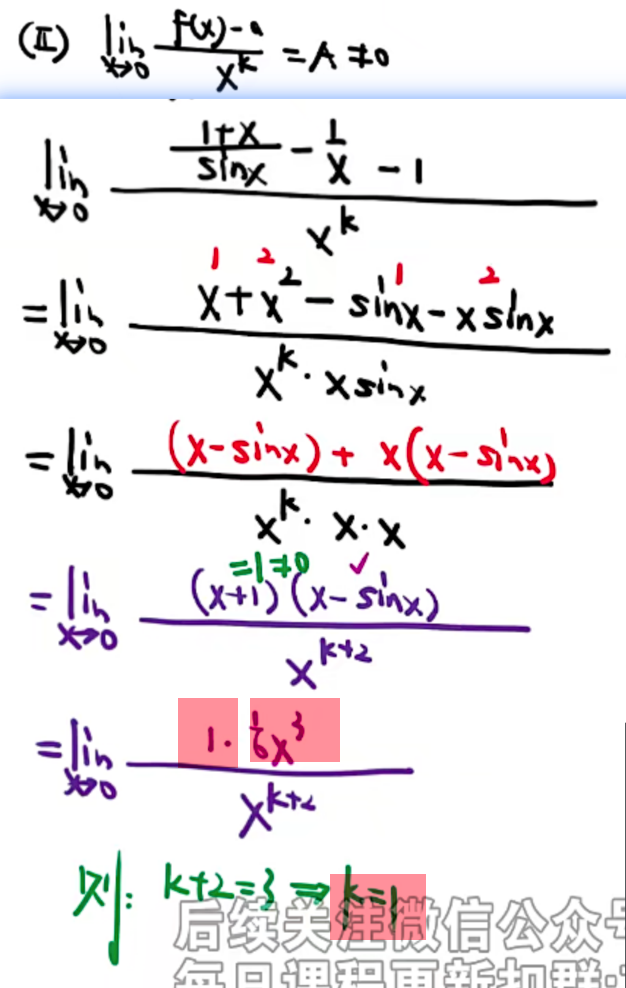 (Ⅱ) lim x→0 (f(x)-a)/x^k = A ≠ 0
lim x→0 ((1+x)/sinx - 1/x - 1)/x^k
1 2 1 2
= lim x→0 (x + x² - sinx - x sinx)/(x^k · x sinx)
= lim x→0 ((x - sinx) + x(x - sinx))/(x^k · x · x)
=1≠0 ✓
= lim x→0 ((x+1)(x - sinx))/x^(k+2)
= lim x→0 (1 · 1/6 x³)/x^(k+2)
则: k+2=3 ⇒ k=1
后续关注微信公众号
每日课程更新扣群: